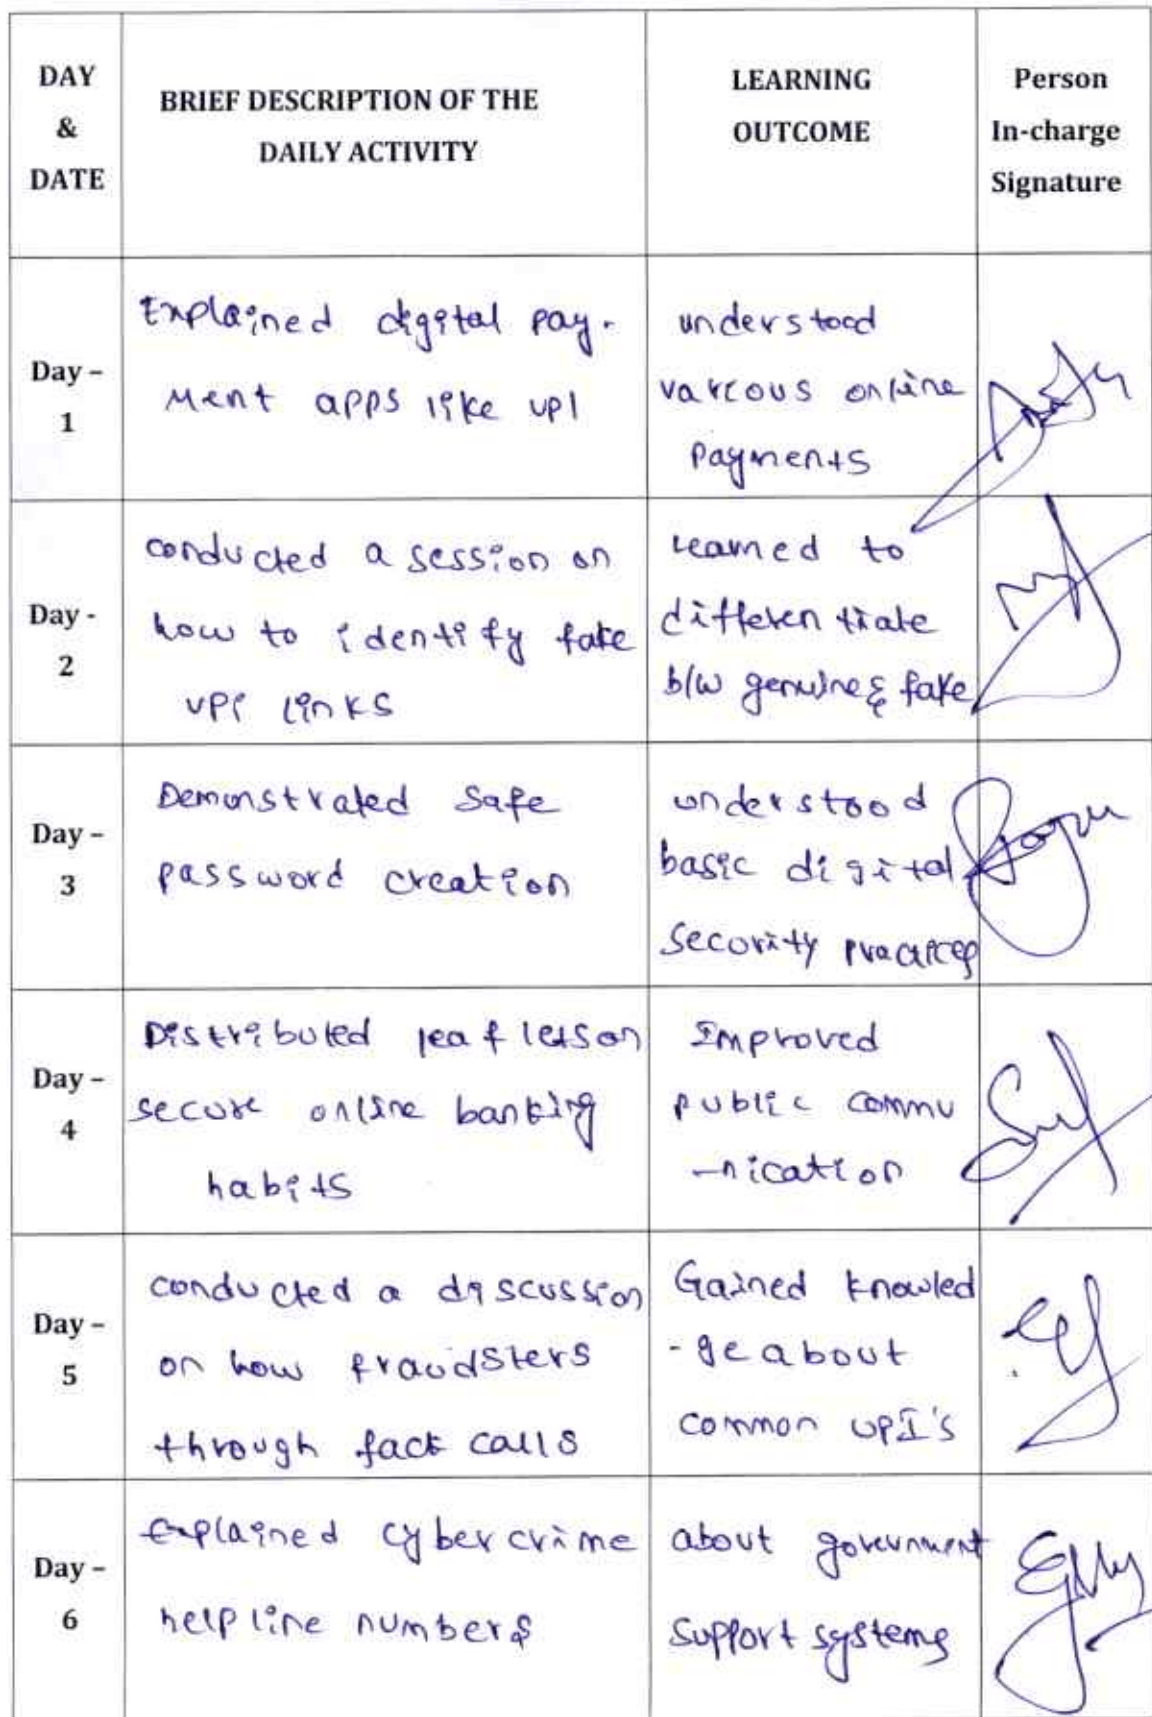 DAY
&
DATE
BRIEF DESCRIPTION OF THE
DAILY ACTIVITY
LEARNING
OUTCOME
Person
In-charge
Signature
Day –
1
Explained digital pay-
ment apps like upi
understood
various online
payments
Day -
2
conducted a session on
how to identify fake
upi links
learned to
differentiate
b/w genuine & fake
Day –
3
Demonstrated safe
password creation
understood
basic digital
security practices
Day –
4
Distributed leaflets on
secure online banking
habits
Improved
public commu
-nication
Day –
5
conducted a discussion
on how fraudsters
through fack calls
Gained knowled
-ge about
common UPI's
Day –
6
Explained cyber crime
help line numbers
about government
support systems